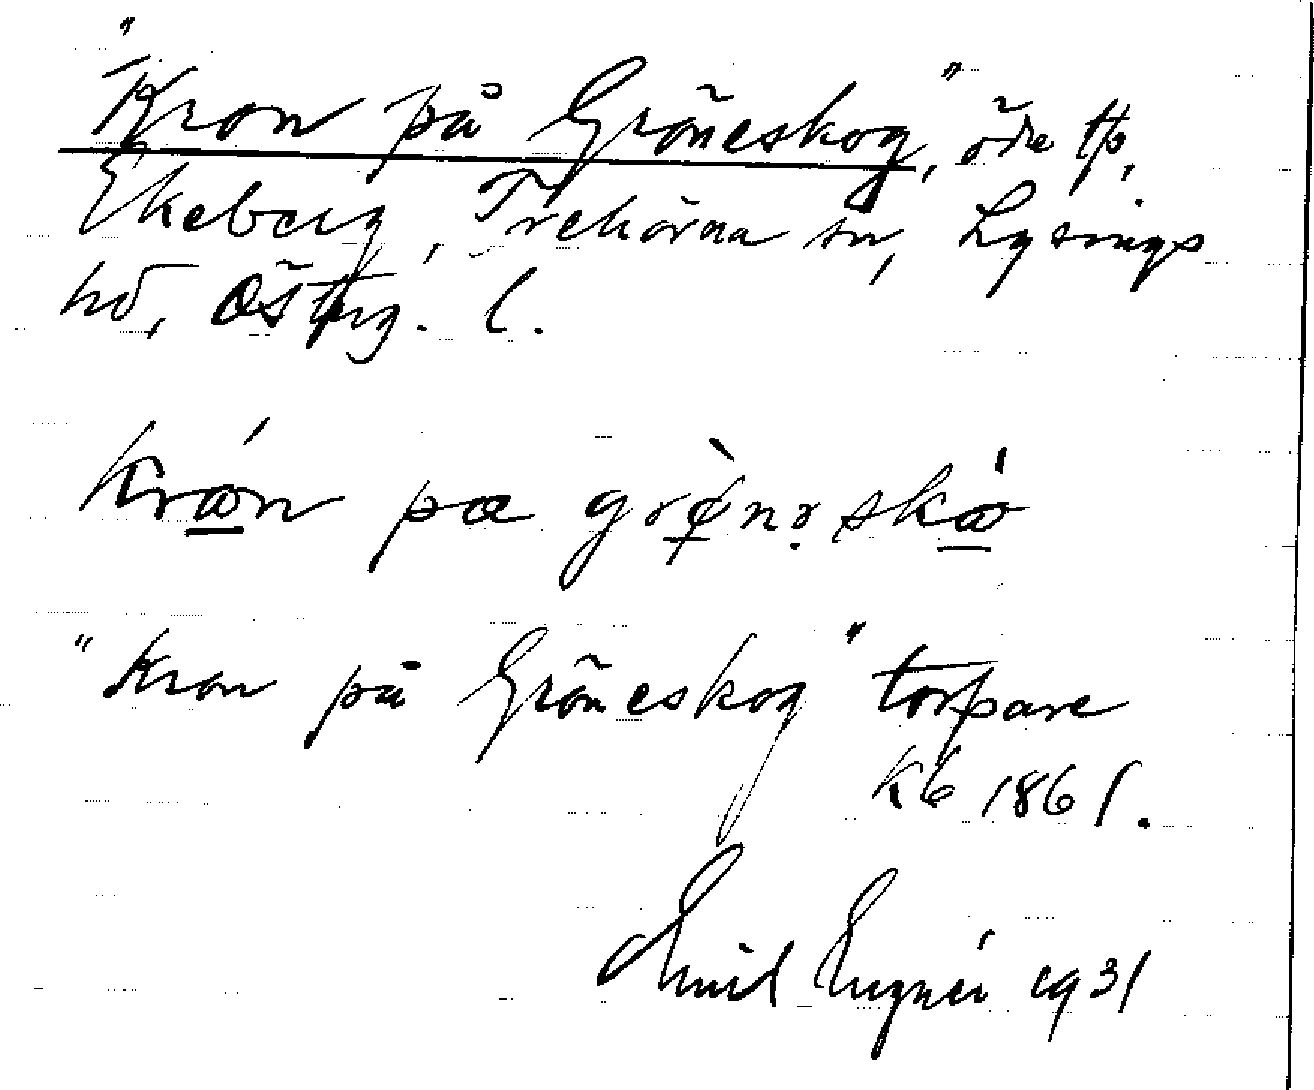 "Kron på Gröneskog", öde tp,
Ekeberg, Trehörna sn, Lysings
hd, Östg. l.
Krån på grø̀nə skå
"Kron på Gröneskog" torpare
Kb 1861.
Emil 1931